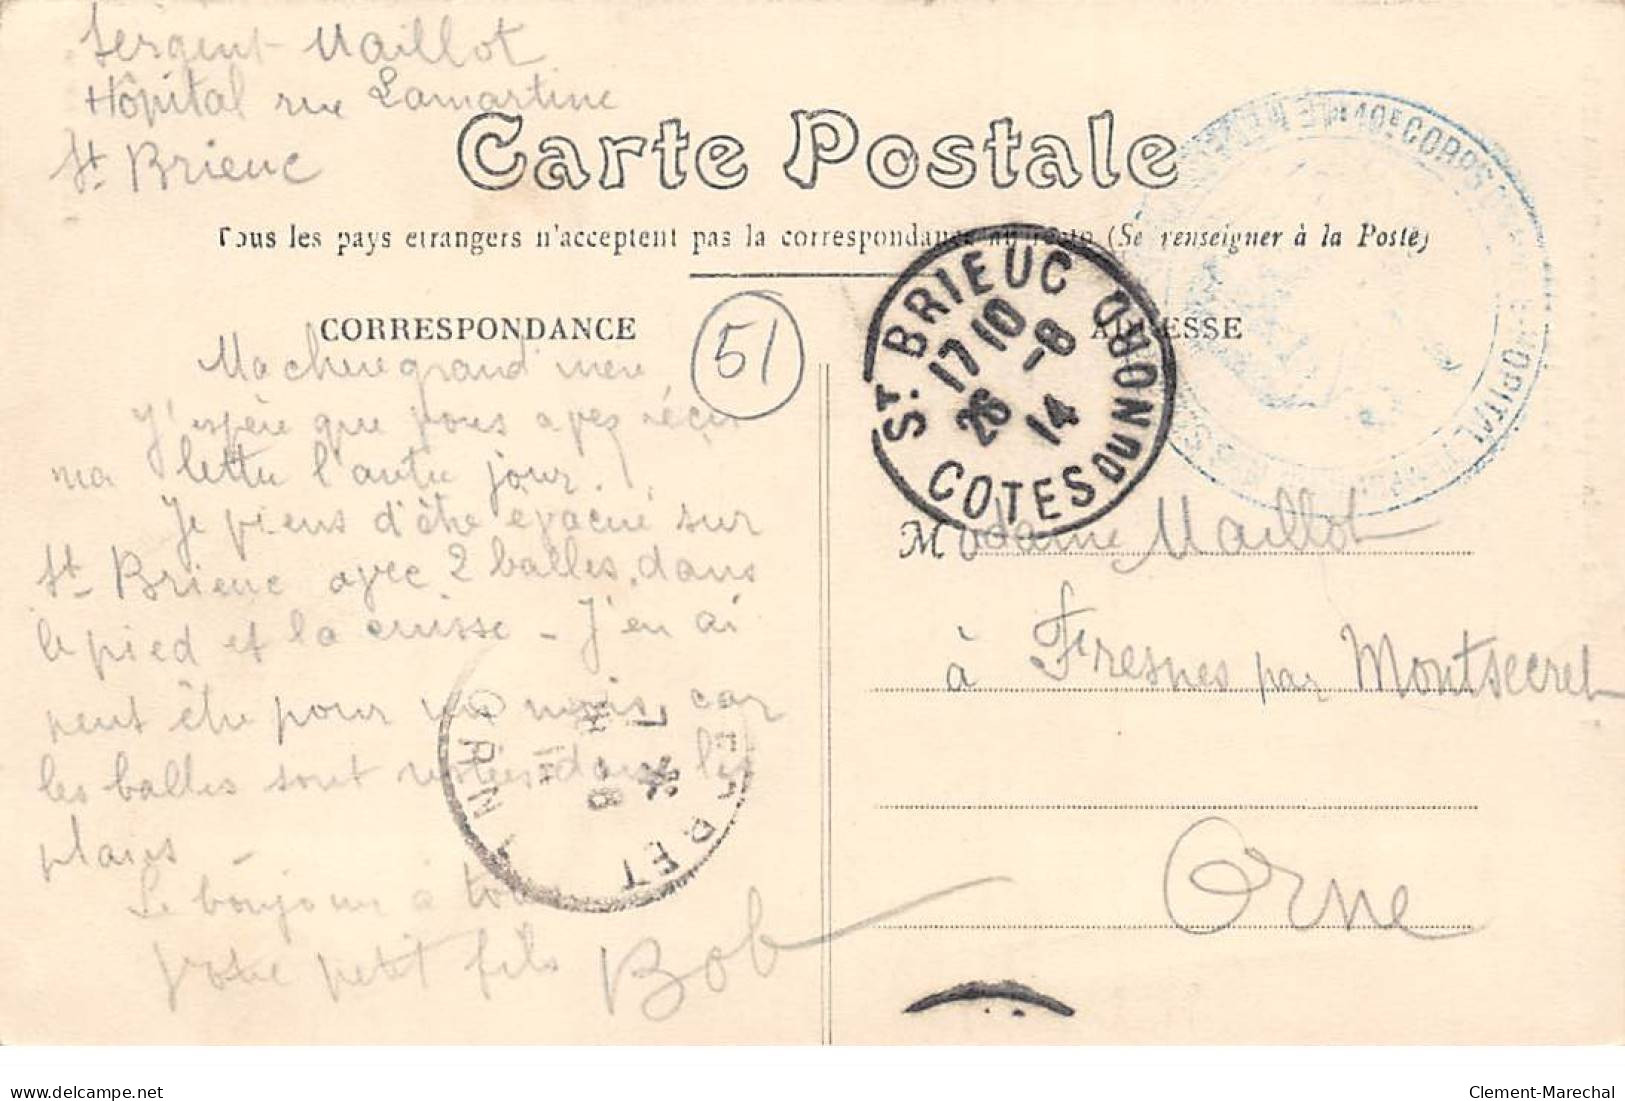 Sergent Maillot
Hôpital rue Lamartine
St Brieuc
Carte Postale
Tous les pays etrangers n'acceptent pas la correspondance au recto (Se renseigner à la Poste)
CORRESPONDANCE
51
ADRESSE
ST BRIEUC
17 10
26 -8
14
COTES DU NORD
10E CORPS
HOPITAL TEMPORAIRE
Ma chere grand mere
J'espère que vous avez réçu
ma lettre l'autre jour.
Je viens d'être évacué sur
St Brieuc avec 2 balles, dans
le pied et la cuisse - J'en ai
peut être pour un mois, car
les balles sont restées dans les
plaies -
Le bonjour à tous
Votre petit fils Bob
Madame Maillot
à Fresnes par Montsecret
Orne
ORNE
delcampe.net
Clement-Marechal